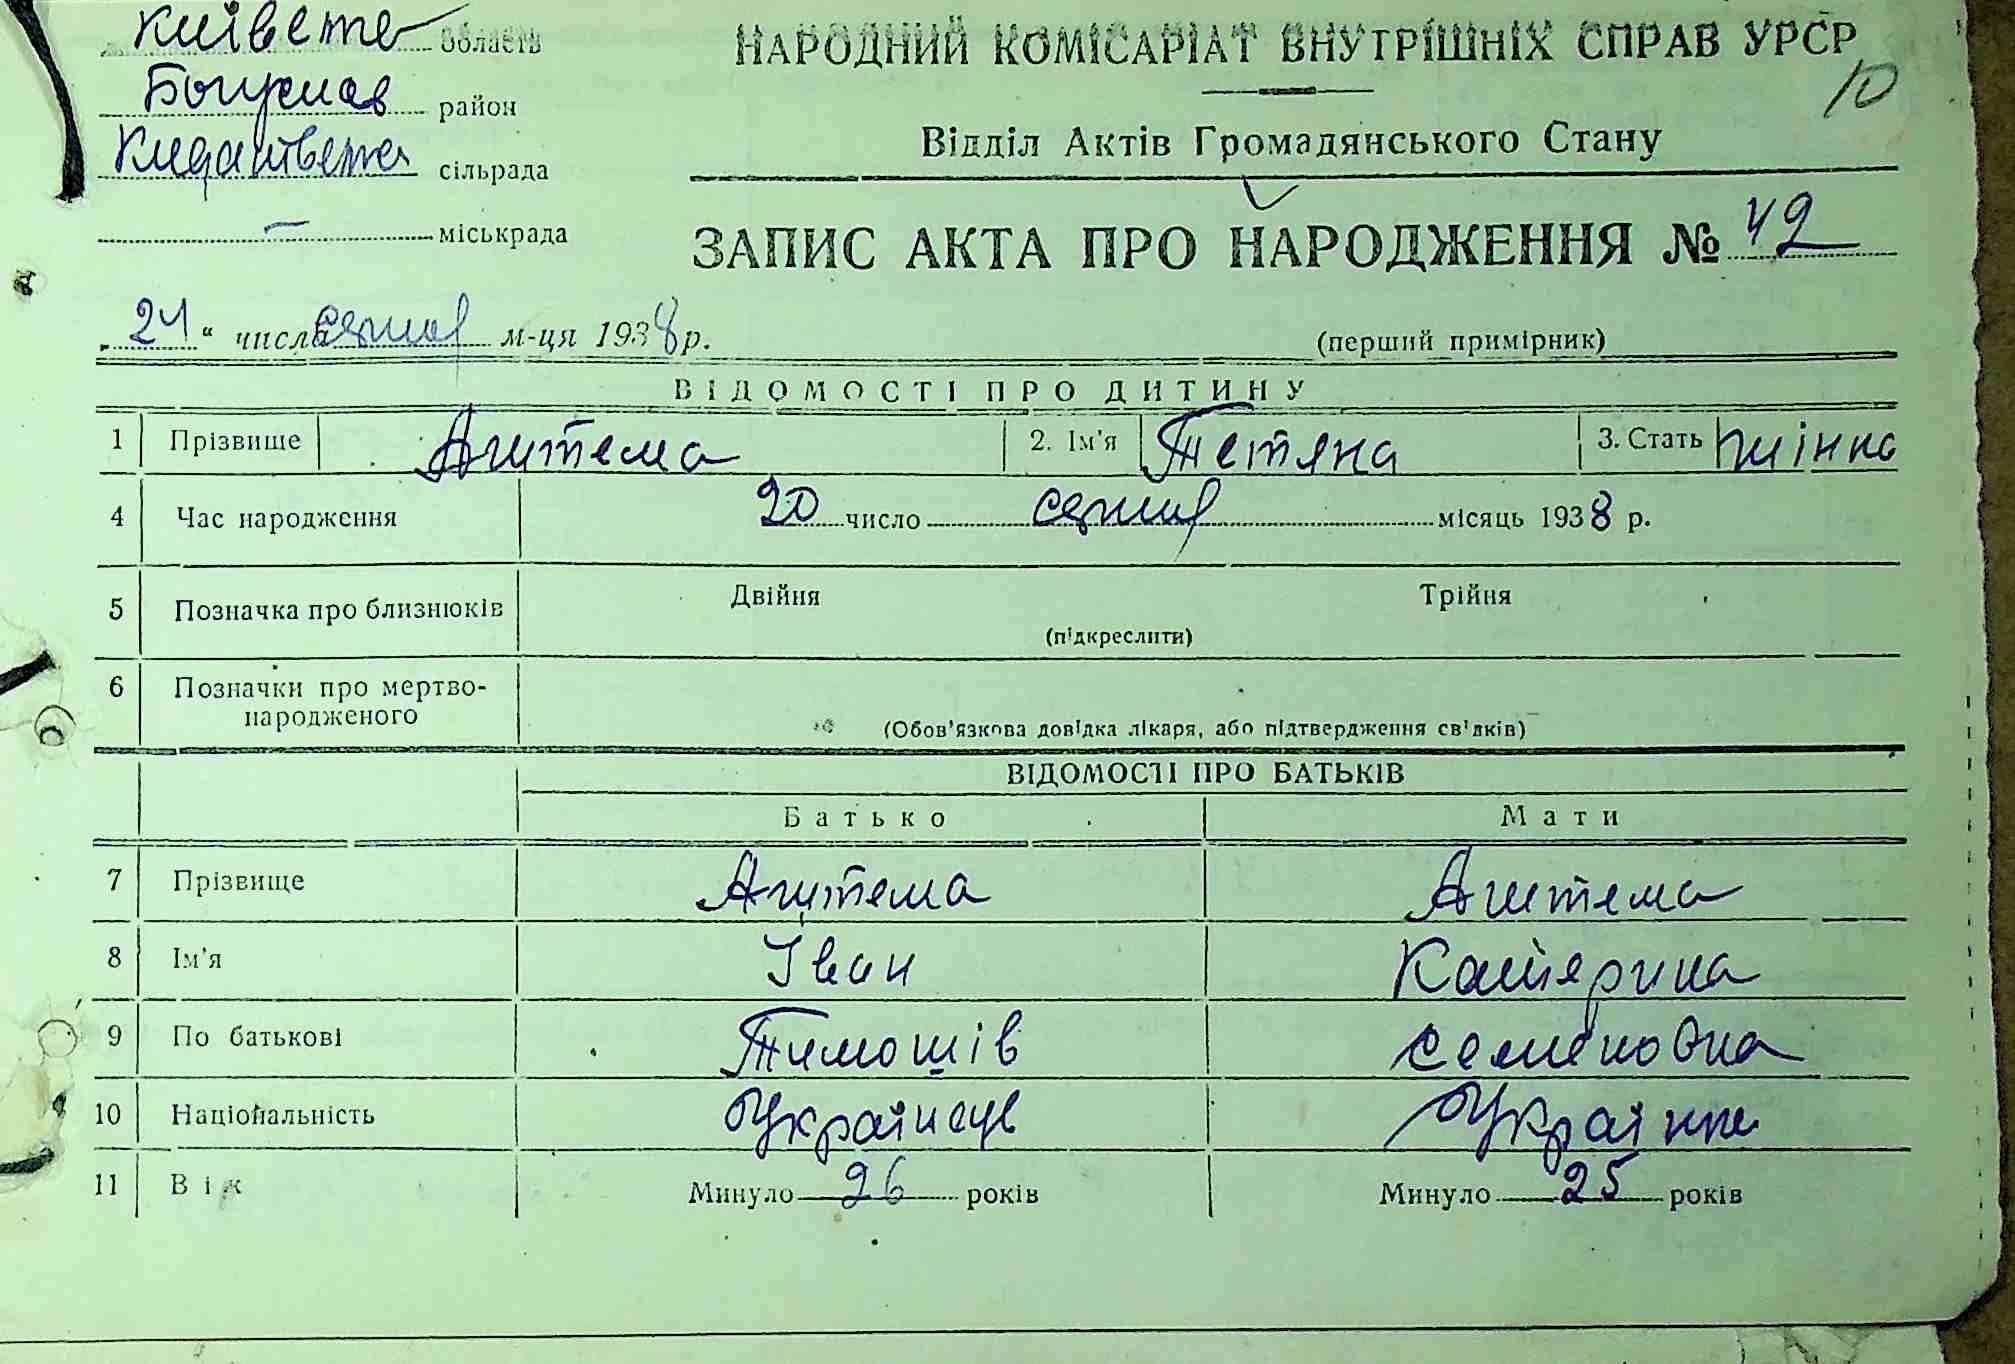 Київська область
Богуслав район
сільрада
— міськрада
НАРОДНИЙ КОМІСАРІАТ ВНУТРІШНІХ СПРАВ УРСР
10
Відділ Актів Громадянського Стану
ЗАПИС АКТА ПРО НАРОДЖЕННЯ № 42
„ 24 “ числа серпня м-ця 1938 р.
(перший примірник)
ВІДОМОСТІ ПРО ДИТИНУ
1 Прізвище 2. Ім'я Тетяна 3. Стать жіноч
4 Час народження 20 число серпня місяць 1938 р.
5 Позначка про близнюків Двійня Трійня
(підкреслити)
6 Позначки про мертво-
народженого
(Обов'язкова довідка лікаря, або підтвердження свідків)
ВІДОМОСТІ ПРО БАТЬКІВ
Батько Мати
7 Прізвище
8 Ім'я Іван Катерина
9 По батькові Тимошів Семеновна
10 Національність Українець Українка
11 Вік Минуло 26 років Минуло 25 років